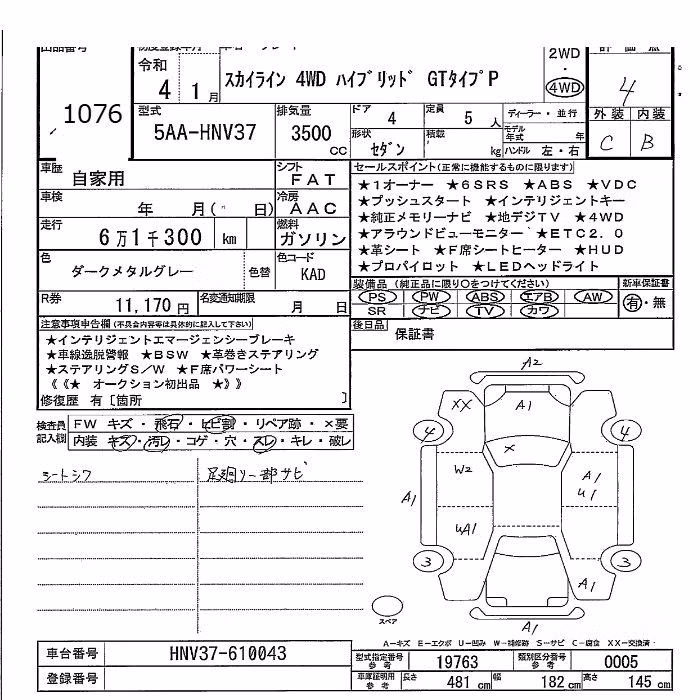 1076
令和
4 1 月
スカイライン 4WD ハイブリッド GTタイプP
2WD
・
4WD
4
型式
5AA-HNV37
排気量
3500
CC
ドア
4
定員
5 人
ディーラー・並行
モデル年式 年
形状
セダン
積載
kg
ハンドル 左・右
外装 内装
C B
車歴
自家用
シフト
FAT
車検
年 月( 日)
冷房
AAC
走行
6万1千300 km
燃料
ガソリン
色
ダークメタルグレー
色替
色コード
KAD
R券
11,170円
名変通知期限
月 日
セールスポイント(正常に機能するものに限ります)
★1オーナー ★6SRS ★ABS ★VDC
★プッシュスタート ★インテリジェントキー
★純正メモリーナビ ★地デジTV ★4WD
★アラウンドビューモニター ★ETC2.0
★革シート ★F席シートヒーター ★HUD
★プロパイロット ★LEDヘッドライト
装備品 (純正品に限り○をつけてください)
PS PW ABS エアB AW
SR ナビ TV カワ
新車保証書
有・無
後日品
保証書
注意事項申告欄(不具合内容等は具体的に記入して下さい)
★インテリジェントエマージェンシーブレーキ
★車線逸脱警報 ★BSW ★革巻きステアリング
★ステアリングS/W ★F席パワーシート
《《★ オークション初出品 ★》》
修復歴 有〔箇所 〕
検査員記入欄
FW キズ・飛石・ヒビ割・リペア跡・×要
内装 キズ・汚レ・コゲ・穴・スレ・キレ・破レ
シートシワ
足廻リ一部サビ
A2
XX
A1
4
4
X
W2
A1
U1
A1
UA1
3
3
A1
A1
スペア
A-キズ E-エクボ U-凹み W-補修跡 S-サビ C-腐食 XX-交換済
車台番号
HNV37-610043
登録番号
型式指定番号
参考
19763
類別区分番号
参考
0005
車庫証明用
参考
長さ
481 cm
幅
182 cm
高さ
145 cm